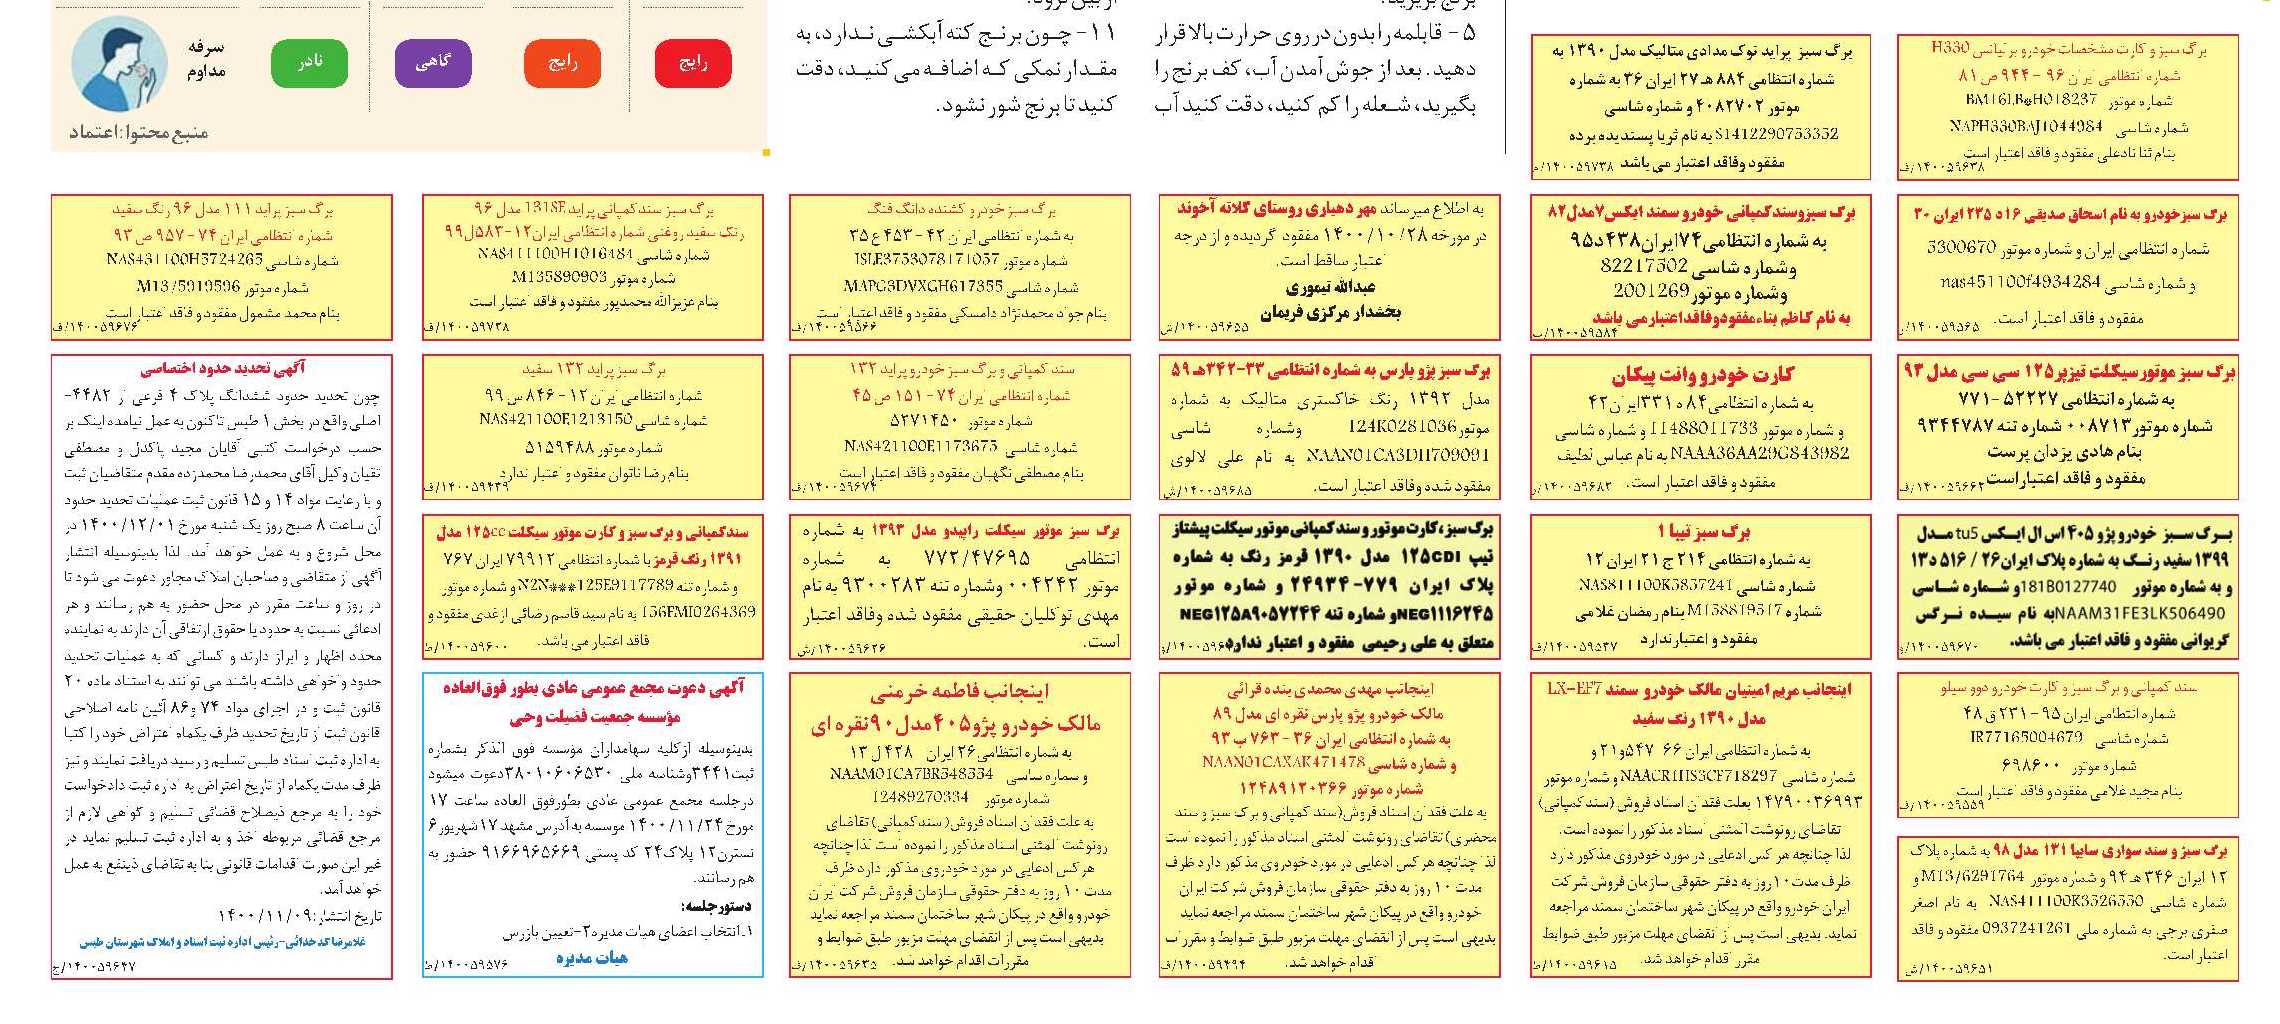 سرفه
مداوم
نادر
گاهی
رایج
رایج
منبع محتوا: اعتماد
۱۱- چون برنج کته آبکشی ندارد، به
مقدار نمکی که اضافه می کنید، دقت
کنید تا برنج شور نشود.
۵- قابلمه را بدون در روی حرارت بالا قرار
دهید. بعد از جوش آمدن آب، کف برنج را
بگیرید، شعله را کم کنید، دقت کنید آب
برگ سبز پراید نوک مدادی متالیک مدل ۱۳۹۰ به
شماره انتظامی ۸۸۴ هـ ۲۷ ایران ۳۶ به شماره
موتور ۴۰۸۲۷۰۲ و شماره شاسی
S1412290753352 به نام ثریا پسندیده برده
مفقود وفاقد اعتبار می باشد
۱۴۰۰۵۹۷۳۸/م
برگ سبز و کارت مشخصات خودرو برلیانس H330
شماره انتظامی ایران ۹۶ - ۹۴۴ ص ۸۱
شماره موتور BM16LB*H018237
شماره شاسی NAPH330BAJ1044984
بنام ثنا نادعلی مفقود و فاقد اعتبار است
۱۴۰۰۵۹۶۳۸/ف
برگ سبزخودرو به نام اسحاق صدیقی ۱۶د ۲۳۵ ایران ۳۰
شماره انتظامی ایران و شماره موتور 5300670
و شماره شاسی nas451100f4934284
مفقود و فاقد اعتبار است.
۱۴۰۰۵۹۵۶۵/ر
برگ سبزوسندکمپانی خودرو سمند ایکس۷مدل۸۲
به شماره انتظامی۷۴ایران۴۳۸د۹۵
وشماره شاسی 82217502
وشماره موتور2001269
به نام کاظم بناءمفقودوفاقداعتبارمی باشد
۱۴۰۰۵۹۵۸۴/ب
به اطلاع میرساند مهر دهیاری روستای کلاته آخوند
در مورخه ۱۴۰۰/۱۰/۲۸ مفقود گردیده و از درجه
اعتبار ساقط است.
عبدالله تیموری
بخشدار مرکزی فریمان
۱۴۰۰۵۹۶۵۵/ش
برگ سبز خودرو کشنده دانگ فنگ
به شماره انتظامی ایران ۴۲ - ۴۵۳ ع ۳۵
شماره موتور ISLE3753078171057
شماره شاسی MAPG3DVXGH617355
بنام جواد محمدنژاد دامسکی مفقود و فاقد اعتبار است
۱۴۰۰۵۹۵۶۶/ف
برگ سبز سند کمپانی پراید 131SE مدل ۹۶
رنگ سفید روغنی شماره انتظامی ایران۱۲-۵۸۳ل۹۹
شماره شاسی NAS411100H1016484
شماره موتور M135890903
بنام عزیزالله محمدپور مفقود و فاقد اعتبار است
۱۴۰۰۵۹۷۳۸/ف
برگ سبز پراید ۱۱۱ مدل ۹۶ رنگ سفید
شماره انتظامی ایران ۷۴ - ۹۵۷ ص ۹۳
شماره شاسی NAS431100H5724265
شماره موتور M13/5919596
بنام محمد مشمول مفقود و فاقد اعتبار است
۱۴۰۰۵۹۶۷۶/ف
برگ سبز موتورسیکلت تیزپر۱۲۵ سی سی مدل ۹۳
به شماره انتظامی ۵۲۲۲۷-۷۷۱
شماره موتور۰۰۸۷۱۳ شماره تنه ۹۳۴۴۷۸۷
بنام هادی یزدان پرست
مفقود و فاقد اعتباراست
۱۴۰۰۵۹۶۶۲/ف
کارت خودرو وانت پیکان
به شماره انتظامی۸۴ ه ۳۳۱ایران۴۲
و شماره موتور 11488011733 و شماره شاسی
NAAA36AA29G843982 به نام عباس لطیف
مفقود و فاقد اعتبار است.
۱۴۰۰۵۹۶۸۲/ر
برگ سبز پژو پارس به شماره انتظامی ۳۳-۳۴۲هـ ۵۹
مدل ۱۳۹۲ رنگ خاکستری متالیک به شماره
موتور124K0281036 وشماره شاسی
NAAN01CA3DH709091 به نام علی لالوی
مفقود شده وفاقد اعتبار است.
۱۴۰۰۵۹۶۸۵/ش
سند کمپانی و برگ سبز خودرو پراید ۱۳۲
شماره انتظامی ایران ۷۴ - ۱۵۱ ص ۴۵
شماره موتور ۵۲۷۱۴۵۰
شماره شاسی NAS421100E1173675
بنام مصطفی نگهبان مفقود و فاقد اعتبار است
۱۴۰۰۵۹۶۷۴/ف
برگ سبز پراید ۱۳۲ سفید
شماره انتظامی ایران ۱۲ - ۸۴۶ س ۹۹
شماره شاسی NAS421100E1213150
شماره موتور ۵۱۵۹۴۸۸
بنام رضا ناتوان مفقود و اعتبار ندارد
۱۴۰۰۵۹۴۳۹/ف
آگهی تحدید حدود اختصاصی
چون تحدید حدود ششدانگ پلاک ۴ فرعی از ۴۴۸۲-
اصلی واقع در بخش ۱ طبس تاکنون به عمل نیامده اینک بر
حسب درخواست کتبی آقایان مجید پاکدل و مصطفی
تقیان وکیل آقای محمدرضا محمدزده مقدم متقاضیان ثبت
و با رعایت مواد ۱۴ و ۱۵ قانون ثبت عملیات تحدید حدود
آن ساعت ۸ صبح روز یک شنبه مورخ ۱۴۰۰/۱۲/۰۱ در
محل شروع و به عمل خواهد آمد. لذا بدینوسیله انتشار
آگهی از متقاضی و صاحبان املاک مجاور دعوت می شود تا
در روز و ساعت مقرر در محل حضور به هم رسانند و هر
ادعائی نسبت به حدود یا حقوق ارتفاقی آن دارند به نماینده
محدد اظهار و ابراز دارند و کسانی که به عملیات تحدید
حدود واخواهی داشته باشند می توانند به استناد ماده ۲۰
قانون ثبت و در اجرای مواد ۷۴ و۸۶ آئین نامه اصلاحی
قانون ثبت از تاریخ تحدید ظرف یکماه اعتراض خود را کتبا
به اداره ثبت اسناد طبس تسلیم و رسید دریافت نمایند و نیز
ظرف مدت یکماه از تاریخ اعتراض به اداره ثبت دادخواست
خود را به مرجع ذیصلاح قضائی تسلیم و گواهی لازم از
مرجع قضائی مربوطه اخذ و به اداره ثبت تسلیم نماید در
غیر این صورت اقدامات قانونی بنا به تقاضای ذینفع به عمل
خواهد آمد.
تاریخ انتشار:۱۴۰۰/۱۱/۰۹
غلامرضا کدخدائی-رئیس اداره ثبت اسناد و املاک شهرستان طبس
۱۴۰۰۵۹۶۴۷/ج
برگ سبز خودرو پژو ۴۰۵ اس ال ایکس tu5 مدل
۱۳۹۹ سفید رنگ به شماره پلاک ایران۲۶ / ۵۱۶ د۱۳
و به شماره موتور 181B0127740و شماره شاسی
NAAM31FE3LK506490به نام سیده نرگس
گریوانی مفقود و فاقد اعتبار می باشد.
۱۴۰۰۵۹۶۷۰/و
برگ سبز تیبا ۱
به شماره انتظامی ۲۱۴ ج ۲۱ ایران ۱۲
شماره شاسی NAS811100K5837241
شماره موتور M158819517 بنام رمضان غلامی
مفقود و اعتبار ندارد
۱۴۰۰۵۹۵۲۷/ف
برگ سبز،کارت موتور و سند کمپانی موتور سیکلت پیشتاز
تیپ ۱۲۵CDI مدل ۱۳۹۰ قرمز رنگ به شماره
پلاک ایران ۷۷۹-۲۴۹۳۴ و شماره موتور
NEG۱۱۱۶۲۴۵و شماره تنه NEG۱۲۵A۹۰۵۷۲۴۴
متعلق به علی رحیمی مفقود و اعتبار ندارد
برگ سبز موتور سیکلت راپیدو مدل ۱۳۹۳ به شماره
انتظامی ۷۷۲/۴۷۶۹۵ به شماره
موتور ۰۰۴۲۴۲ وشماره تنه ۹۳۰۰۲۸۳ به نام
مهدی توکلیان حقیقی مفقود شده وفاقد اعتبار
است.
۱۴۰۰۵۹۶۲۶/ش
سندکمپانی و برگ سبز و کارت موتور سیکلت ۱۲۵cc مدل
۱۳۹۱ رنگ قرمز با شماره انتظامی ۷۹۹۱۲ ایران ۷۶۷
و شماره تنه N2N***125E9117789 و شماره موتور
156FMI0264369 به نام سید قاسم رضائی ازغدی مفقود و
فاقد اعتبار می باشد.
۱۴۰۰۵۹۶۰۰/ط
سند کمپانی و برگ سبز و کارت خودرو دوو سیلو
شماره انتظامی ایران ۹۵-۲۳۱ ق ۴۸
شماره شاسی IR77165004679
شماره موتور ۶۹۸۶۰۰
بنام مجید غلامی مفقود و فاقد اعتبار است
۱۴۰۰۵۹۵۵۹/ف
برگ سبز و سند سواری سایپا ۱۳۱ مدل ۹۸ به شماره پلاک
۱۲ ایران ۳۴۶ هـ ۹۴ و شماره موتور M13/6291764 و
شماره شاسی NAS411100K3326330 به نام اصغر
صفری برجی به شماره ملی 0937241261 مفقود و فاقد
اعتبار است.
۱۴۰۰۵۹۶۵۱/ش
اینجانب مریم امینیان مالک خودرو سمند LX-EF7
مدل ۱۳۹۰ رنگ سفید
به شماره انتظامی ایران ۶۶ ۵۴۷و۲۱ و
شماره شاسی NAACR1HS3CF718297 و شماره موتور
۱۴۷۹۰۰۳۶۹۹۳ بعلت فقدان اسناد فروش (سند کمپانی)
تقاضای رونوشت المثنی اسناد مذکور را نموده است.
لذا چنانچه هر کس ادعایی در مورد خودروی مذکور دارد
ظرف مدت۱۰ روز به دفتر حقوقی سازمان فروش شرکت
ایران خودرو واقع در پیکان شهر ساختمان سمند مراجعه
نماید. بدیهی است پس از انقضای مهلت مزبور طبق ضوابط
مقرر اقدام خواهد شد.
۱۴۰۰۵۹۶۱۵/ط
اینجانب مهدی محمدی بنده قرائی
مالک خودرو پژو پارس نقره ای مدل ۸۹
به شماره انتظامی ایران ۳۶ - ۷۶۳ ب ۹۳
و شماره شاسی NAAN01CAXAK471478
شماره موتور ۱۲۴۸۹۱۲۰۳۶۶
به علت فقدان اسناد فروش(سند کمپانی و برگ سبز و سند
محضری) تقاضای رونوشت المثنی اسناد مذکور را نموده است
لذا چنانچه هر کس ادعایی در مورد خودروی مذکور دارد ظرف
مدت ۱۰ روز به دفتر حقوقی سازمان فروش شرکت ایران
خودرو واقع در پیکان شهر ساختمان سمند مراجعه نماید
بدیهی است پس از انقضای مهلت مزبور طبق ضوابط و مقررات
اقدام خواهد شد.
۱۴۰۰۵۹۴۹۴/ف
اینجانب فاطمه خرمنی
مالک خودرو پژو۴۰۵مدل۹۰نقره ای
به شماره انتظامی۲۶ ایران ۴۲۸ ل ۱۳
و شماره شاسی NAAM01CA7BR548554
شماره موتور 12489270334
به علت فقدان اسناد فروش (سند کمپانی) تقاضای
رونوشت المثنی اسناد مذکور را نموده است لذا چنانچه
هر کس ادعایی در مورد خودروی مذکور دارد ظرف
مدت ۱۰ روز به دفتر حقوقی سازمان فروش شرکت ایران
خودرو واقع در پیکان شهر ساختمان سمند مراجعه نماید
بدیهی است پس از انقضای مهلت مزبور طبق ضوابط و
مقررات اقدام خواهد شد.
۱۴۰۰۵۹۶۳۵/ف
آگهی دعوت مجمع عمومی عادی بطور فوق العاده
مؤسسه جمعیت فضیلت وحی
بدینوسیله ازکلیه سهامداران مؤسسه فوق الذکر بشماره
ثبت۳۴۴۱وشناسه ملی ۳۸۰۱۰۶۰۶۵۳۰دعوت میشود
درجلسه مجمع عمومی عادی بطورفوق العاده ساعت ۱۷
مورخ ۱۴۰۰/۱۱/۲۴ موسسه به آدرس مشهد ۱۷شهریور۶
نسترن۱۲ پلاک۲۴ کد پستی ۹۱۶۶۹۶۵۶۶۹ حضور به
هم رسانند.
دستورجلسه:
۱.انتخاب اعضای هیات مدیره۲-تعیین بازرس
هیأت مدیره
۱۴۰۰۵۹۵۷۶/ط